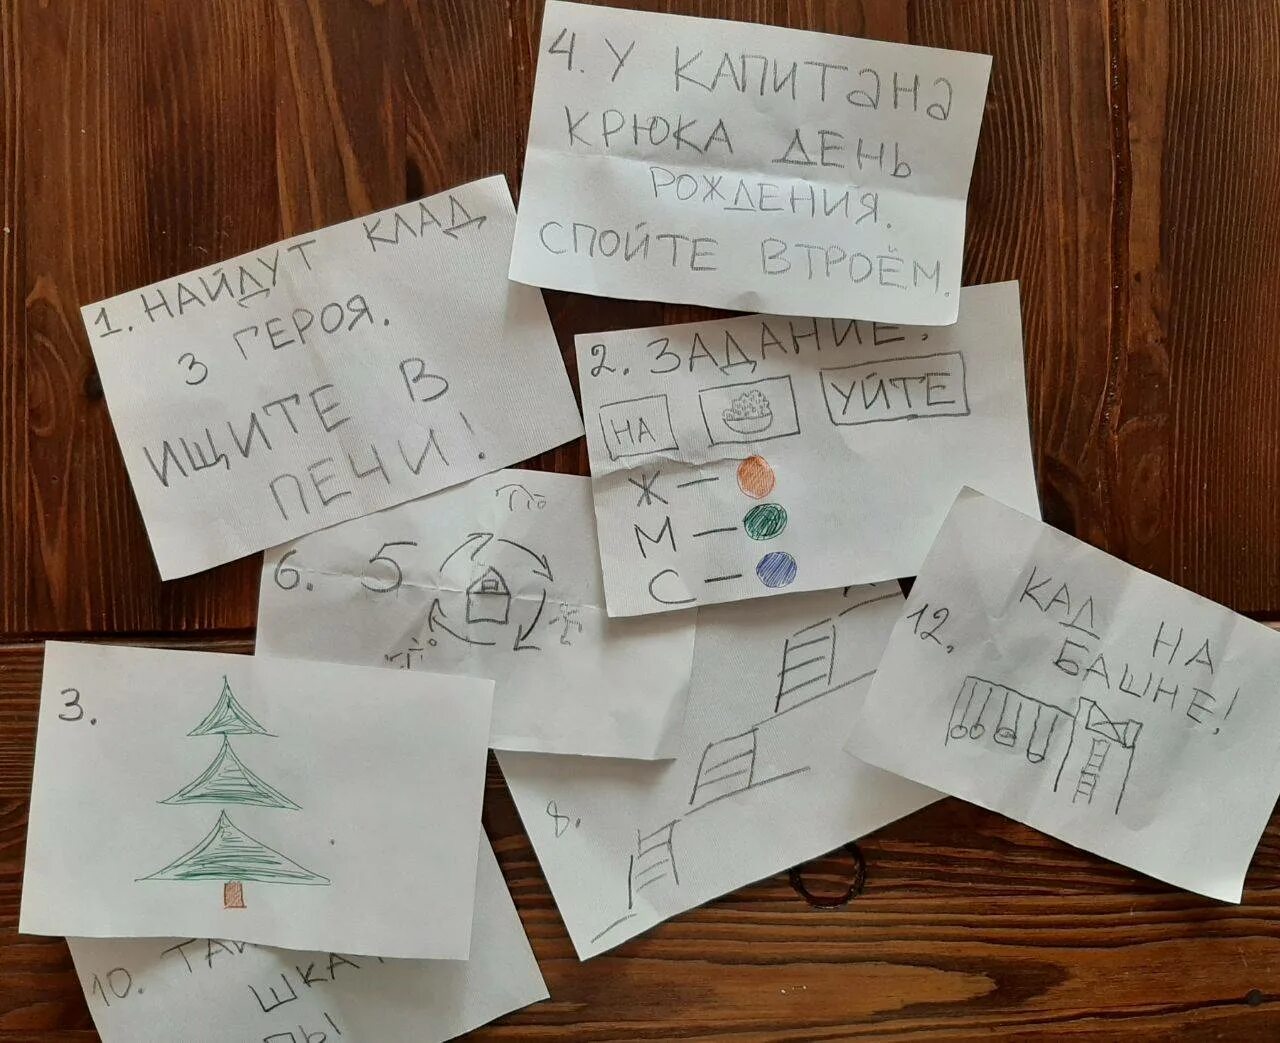 4. У КАПИТАНА
КРЮКА ДЕНЬ
РОЖДЕНИЯ.
СПОЙТЕ ВТРОЁМ.
1. НАЙДУТ КЛАД
3 ГЕРОЯ.
ИЩИТЕ В
ПЕЧИ!
2. ЗАДАНИЕ.
НА УЙТЕ
Ж —
М —
С —
6. 5
12. КАД НА
БАШНЕ!
3.
8.
10.